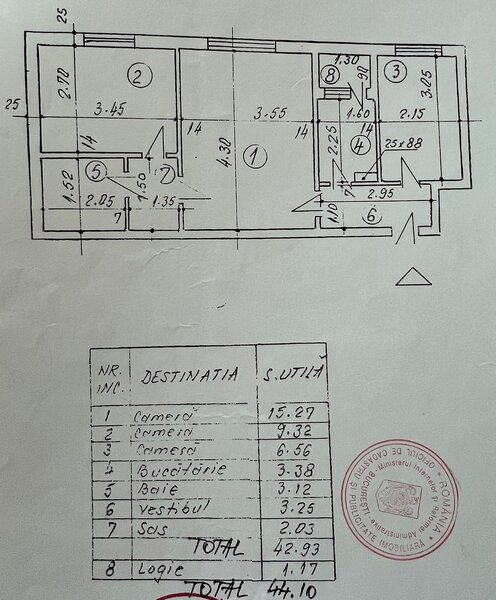 25
2.70
2
3.45
14
25
14
3.55
4.30
1
14
8
1.30
90
1.60
14
2.25
4
25x88
3
3.05
2.15
5
1.52
2.05
7
1.50
7
1.35
1.10
7
2.95
6
NR. INC.
DESTINATIA
S. UTILĂ
1 Cameră 15.27
2 Cameră 9.32
3 Cameră 6.56
4 Bucătărie 3.38
5 Baie 3.12
6 Vestibul 3.25
7 Sas 2.03
TOTAL 42.93
8 Logie 1.17
TOTAL 44.10
ROMÂNIA
Ministerul Internelor și Reformei Administrative
OFICIUL DE CADASTRU ȘI PUBLICITATE IMOBILIARĂ
BUCUREȘTI